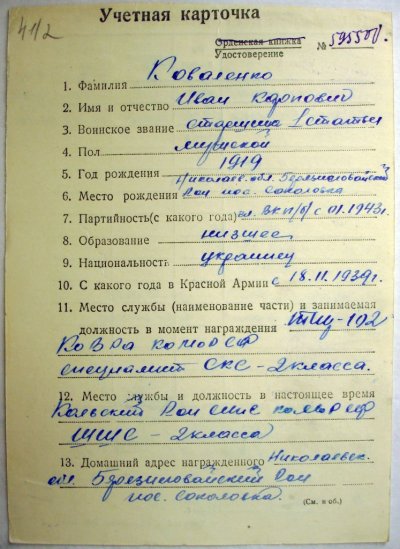 41/2
Учетная карточка
Орденская книжка
Удостоверение № 595501.
1. Фамилия Коваленко
2. Имя и отчество Иван Карпович
3. Воинское звание старшина 1 статьи
4. Пол мужской
5. Год рождения 1919
Николаев. обл. Березниговатский
6. Место рождения р-он пос. Соколовка
7. Партийность(с какого года) чл. ВКП/б/ с 01.1943г.
8. Образование низшее
9. Национальность украинец
10. С какого года в Красной Армии с 18.11.1939г.
11. Место службы (наименование части) и занимаемая
должность в момент награждения ТЩ-102
специалист СКС - 2 класса.
12. Место службы и должность в настоящее время
Кольский р-он
ШШС - 2 класса
13. Домашний адрес награжденного Николаевск.
обл. р-он
пос. Соколовка
(См. н об.)